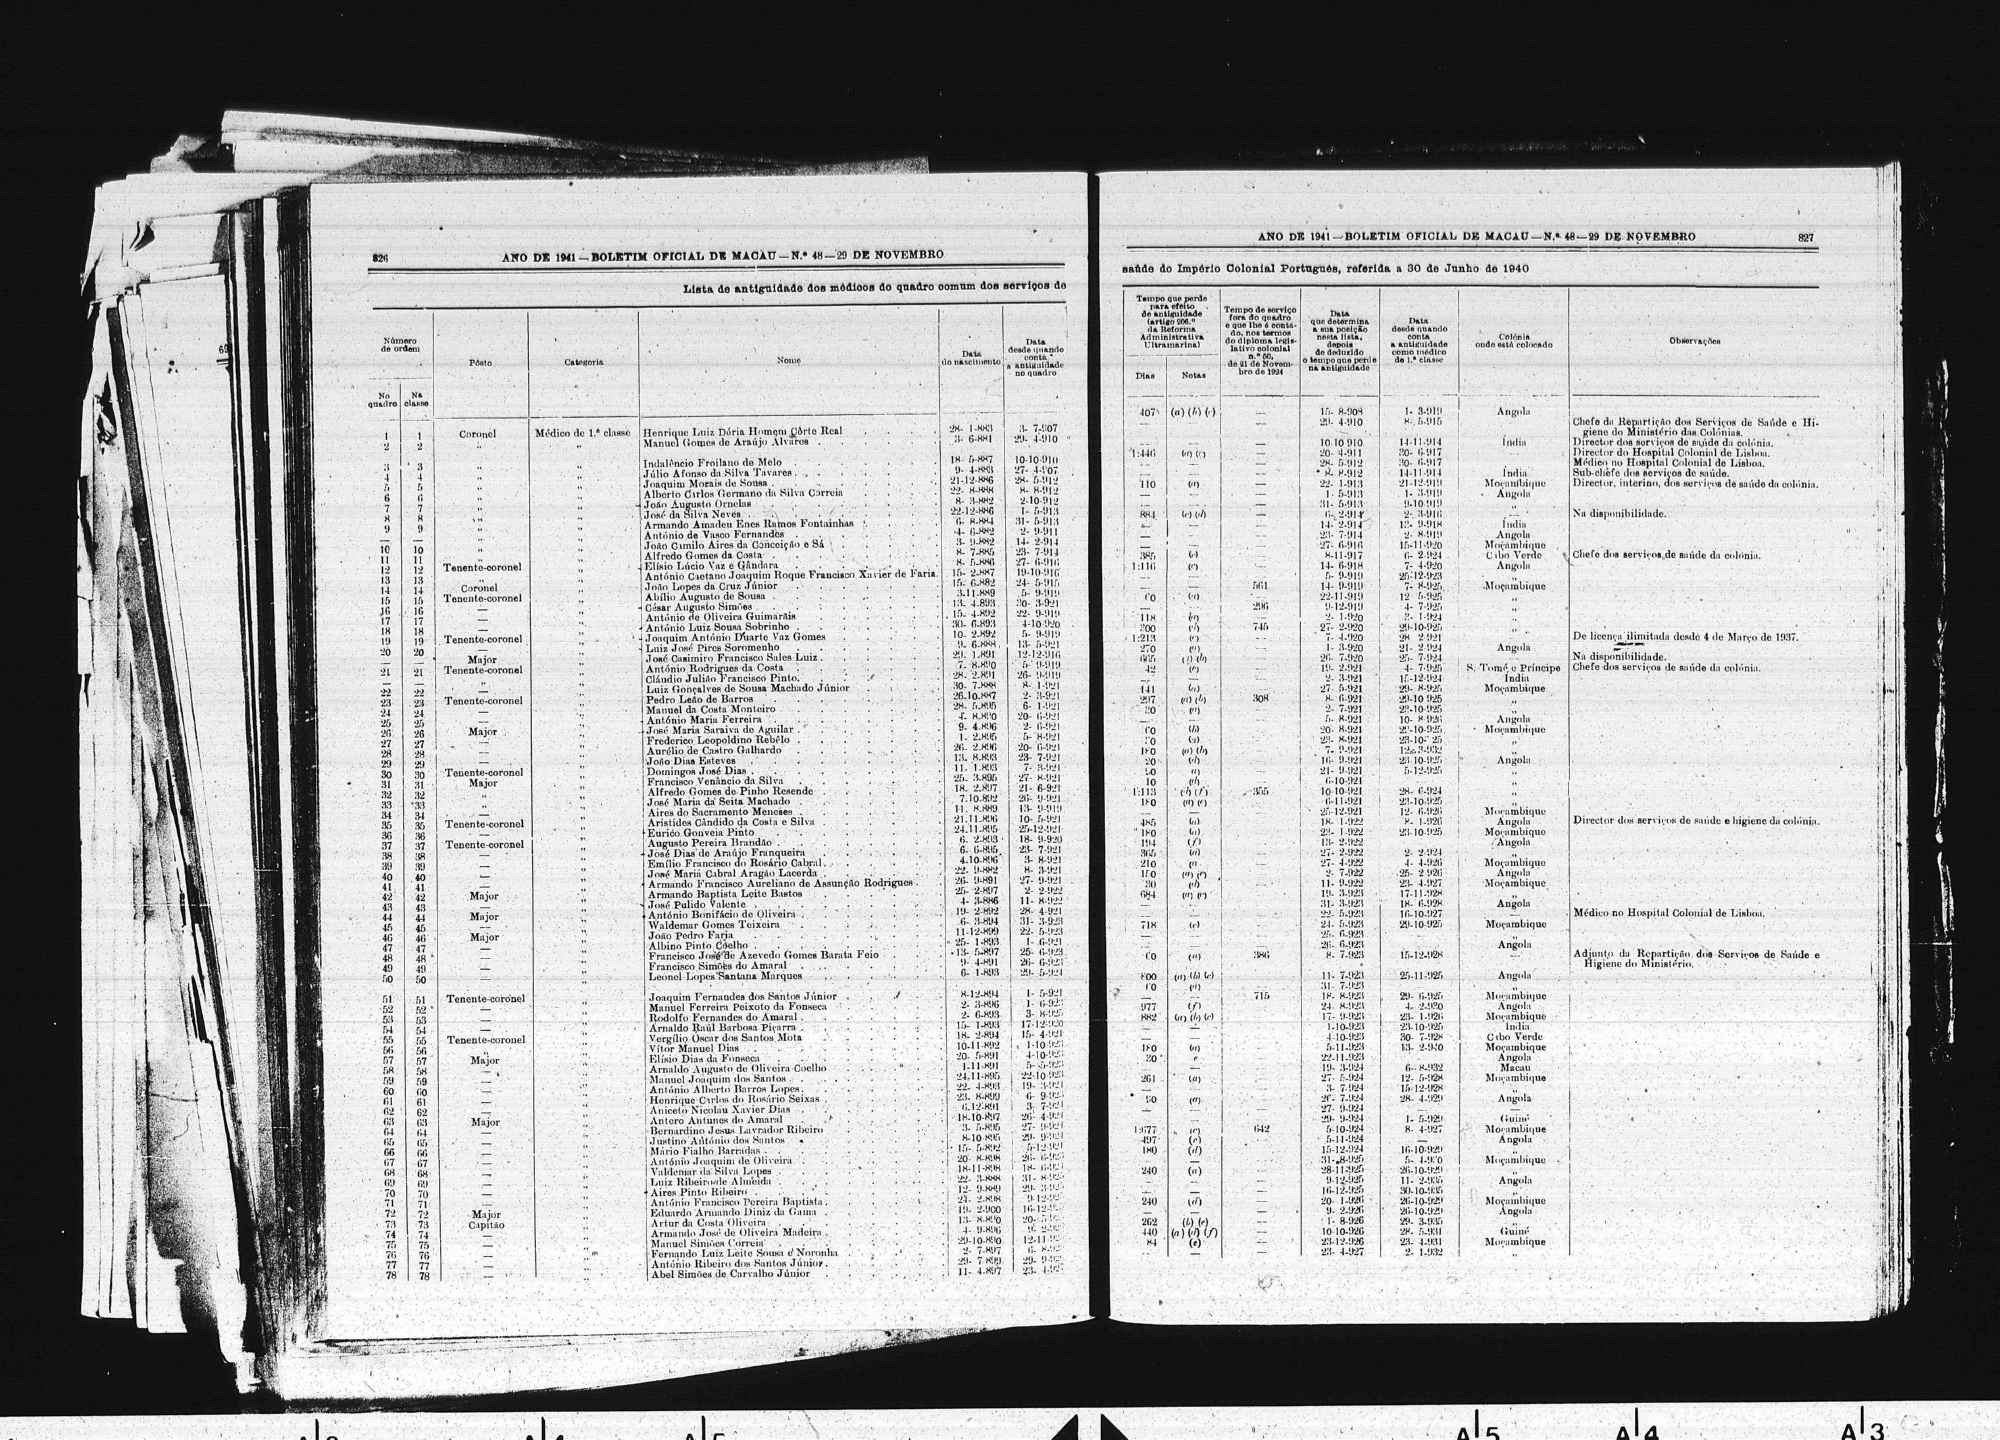 826
ANO DE 1941—BOLETIM OFICIAL DE MACAU—N.º 48—29 DE NOVEMBRO
Lista de antiguidade dos médicos do quadro comum dos serviços de
Número de ordem
No quadro
Na classe
Pôsto
Categoria
Nome
Data do nascimento
Data desde quando conta a antiguidade no quadro
1 1 Coronel Médico de 1.ª classe Henrique Luiz Dória Homem Côrte Real 28- 1-883 3- 7-907
2 2 " " Manuel Gomes de Araújo Alvares 3- 6-881 29- 4-910
3 3 " " Indalêncio Froilano de Melo 18- 5-887 10-10-910
4 4 " " Júlio Afonso da Silva Tavares 9- 4-883 27- 4-907
5 5 " " Joaquim Morais de Sousa 21-12-886 28- 5-912
6 6 " " Alberto Carlos Germano da Silva Correia 22- 8-888 8- 8-912
7 7 " " João Augusto Ornelas 8- 3-882 2-10-912
8 8 " " José da Silva Neves 22-12-886 1- 5-913
9 9 " " Armando Amadeu Enes Ramos Fontainhas 6- 8-884 31- 5-913
— — " " António de Vasco Fernandes 4- 6-882 2- 9-911
10 10 " " João Camilo Aires da Conceição e Sá 3- 9-882 14- 2-914
11 11 " " Alfredo Gomes da Costa 8- 7-885 23- 7-914
12 12 Tenente-coronel " Elísio Lúcio Vaz e Gândara 8- 5-886 27- 6-916
13 13 " " António Caetano Joaquim Roque Francisco Xavier de Faria 15- 2-887 19-10-916
14 14 Coronel " João Lopes da Cruz Júnior 15- 6-882 24- 5-915
15 15 Tenente-coronel " Abílio Augusto de Sousa 3-11-889 5- 9-919
16 16 — " César Augusto Simões 13- 4-893 30- 3-921
17 17 — " António de Oliveira Guimarãis 15- 4-892 22- 9-919
18 18 — " António Luiz Sousa Sobrinho 30- 6-893 4-10-920
19 19 Tenente-coronel " Joaquim António Duarte Vaz Gomes 10- 2-892 5- 9-919
20 20 — " Luiz José Pires Soromenho 9- 6-888 13- 5-921
— — Major " José Casimiro Francisco Sales Luiz 29- 1-891 12-12-916
21 21 Tenente-coronel " António Rodrigues da Costa 7- 8-890 5- 9-919
— — " " Cláudio Julião Francisco Pinto 28- 2-891 26- 9-919
22 22 — " Luiz Gonçalves de Sousa Machado Júnior 30- 7-888 8- 1-921
23 23 Tenente-coronel " Pedro Leão de Barros 26-10-887 2- 3-921
24 24 — " Manuel da Costa Monteiro 28- 5-895 6- 1-921
25 25 — " António Maria Ferreira 4- 8-890 20- 6-921
26 26 Major " José Maria Saraiva de Aguilar 9- 4-896 2- 6-921
27 27 — " Frederico Leopoldino Rebêlo 1- 2-895 5- 8-921
28 28 — " Aurélio de Castro Galhardo 26- 2-896 20- 6-921
29 29 — " João Dias Esteves 13- 8-893 23- 7-921
30 30 Tenente-coronel " Domingos José Dias 11- 1-893 7- 3-921
31 31 Major " Francisco Venâncio da Silva 25- 3-895 27- 8-921
32 32 " " Alfredo Gomes de Pinho Resende 18- 2-897 21- 6-921
33 33 " " José Maria da Seita Machado 7-10-892 26- 9-921
34 34 — " Aires do Sacramento Meneses 11- 8-889 13- 9-919
35 35 Tenente-coronel " Aristides Cândido da Costa e Silva 21-11-896 10- 5-921
36 36 — " Eurico Gouveia Pinto 24-11-895 25-12-921
37 37 Tenente-coronel " Augusto Pereira Brandão 6- 2-893 18- 9-920
38 38 — " José Dias de Araújo Franqueira 6- 6-895 23- 7-921
39 39 — " Emílio Francisco do Rosário Cabral 4-10-896 3- 8-921
40 40 — " José Maria Cabral Aragão Lacerda 22- 9-882 8- 3-921
41 41 — " Armando Francisco Aureliano de Assunção Rodrigues 26- 9-891 27- 9-921
42 42 Major " Armando Baptista Leite Bastos 25- 2-897 2- 2-922
43 43 — " José Pulido Valente 4- 3-886 11- 8-922
44 44 Major " António Bonifácio de Oliveira 19- 2-892 28- 4-921
45 45 — " Waldemar Gomes Teixeira 6- 3-894 31- 3-923
46 46 Major " João Pedro Faria 11-12-899 22- 5-923
47 47 — " Albino Pinto Coelho 25- 1-893 1- 6-921
48 48 — " Francisco José de Azevedo Gomes Barata Feio 13- 5-897 25- 6-923
49 49 — " Francisco Simões do Amaral 9- 4-891 26- 6-923
50 50 — " Leonel Lopes Santana Marques 6- 1-893 29- 5-924
51 51 Tenente-coronel " Joaquim Fernandes dos Santos Júnior 8-12-894 1- 5-921
52 52 — " Manuel Ferreira Peixoto da Fonseca 2- 3-896 1- 6-923
53 53 — " Rodolfo Fernandes do Amaral 2- 6-893 3- 8-925
54 54 — " Arnaldo Raúl Barbosa Piçarra 15- 1-893 17-12-920
55 55 Tenente-coronel " Vergílio Oscar dos Santos Mota 18- 2-894 15- 4-921
56 56 " " Vítor Manuel Dias 10-11-892 1-10-923
57 57 Major " Elísio Dias da Fonseca 20- 5-891 4-10-923
58 58 — " Arnaldo Augusto de Oliveira Coelho 1-11-891 5- 5-923
59 59 — " Manuel Joaquim dos Santos 24-11-895 22-10-923
60 60 — " António Alberto Barros Lopes 22- 4-893 19- 3-921
61 61 — " Henrique Carlos do Rosário Seixas 23- 8-899 6- 9-923
62 62 — " Aniceto Nicolau Xavier Dias 6-12-891 3- 7-921
63 63 Major " Antero Antunes do Amaral 18-10-897 26- 4-921
64 64 — " Bernardino Jesus Lavrador Ribeiro 3- 5-895 27- 9-921
65 65 — " Justino António dos Santos 8-10-895 29- 9-921
66 66 — " Mário Fialho Barradas 15- 5-892 5-12-921
67 67 — " António Joaquim de Oliveira 20- 8-898
68 68 — " Valdemar da Silva Lopes 18-11-898
69 69 — " Luiz Ribeiro de Almeida 22- 3-888
70 70 — " Aires Pinto Ribeiro 12- 9-889
71 71 — " António Francisco Pereira Baptista 24- 2-898
72 72 Major " Eduardo Armando Diniz da Gama 19- 2-900
73 73 Capitão " Artur da Costa Oliveira 13- 8-890
74 74 — " Armando José de Oliveira Madeira 4- 9-896
75 75 — " Manuel Simões Correia 29-10-890
76 76 — " Fernando Luiz Leite Sousa e Noronha 2- 7-897
77 77 — " António Ribeiro dos Santos Júnior 29- 7-899
78 78 — " Abel Simões de Carvalho Júnior 11- 4-897
ANO DE 1941—BOLETIM OFICIAL DE MACAU—N.º 48—29 DE NOVEMBRO
827
saúde do Império Colonial Português, referida a 30 de Junho de 1940
Tempo que perde para efeito de antiguidade (artigo 206.º da Reforma Administrativa Ultramarina)
Dias
Notas
Tempo de serviço fora do quadro e que lhe é contado, nos termos do diploma legislativo colonial n.º 50, de 21 de Novembro de 1924
Data que determina a sua posição nesta lista, depois de deduzido o tempo que perde na antiguidade
Data desde quando conta a antiguidade como médico de 1.ª classe
Colónia onde está colocado
Observações
407 (a) (b) (c) — 15- 8-908 1- 3-919 Angola
29- 4-910 8- 5-915 Chefe da Repartição dos Serviços de Saúde e Hi-
giene do Ministério das Colónias.
— — — 10-10-910 14-11-914 Índia Director dos serviços de saúde da colónia.
1:446 (a) (c) — 20- 4-911 30- 6-917 — Director do Hospital Colonial de Lisboa.
— — — 28- 5-912 30- 6-917 Médico no Hospital Colonial de Lisboa.
— — — 8- 8-912 14-11-914 Índia Sub-chefe dos serviços de saúde.
110 (a) — 22- 1-913 21-12-919 Moçambique Director, interino, dos serviços de saúde da colónia.
— — — 1- 5-913 1- 3-919 Angola
— — — 31- 5-913 9-10-919 "
884 (c) (d) — 6- 2-914 2- 3-916 — Na disponibilidade.
— — — 14- 2-914 13- 9-918 Índia
— — — 23- 7-914 2- 8-919 Angola
— — — 27- 6-916 15-11-920 Moçambique
385 (c) — 8-11-917 6- 2-924 Cabo Verde Chefe dos serviços de saúde da colónia.
1:116 (c) — 14- 6-918 7- 4-920 Angola
— — — 5- 9-919 25-12-923 "
— — 561 14- 9-919 7- 8-925 Moçambique
60 (a) — 22-11-919 12- 5-925 "
— — 296 9-12-919 4- 7-925 "
118 — 2- 1-920 3- 1-924 "
300 745 27- 2-920 29-10-925 "
1:213 (c) — 7- 4-920 28- 2-921 De licença ilimitada desde 4 de Março de 1937.
270 — 1- 3-920 21- 2-924 Angola
665 — 26- 7-920 25- 7-924 — Na disponibilidade.
42 (c) — 19- 2-921 4- 7-925 S. Tomé e Príncipe Chefe dos serviços de saúde da colónia.
— — — 2- 3-921 15-12-924 Índia
141 (a) — 27- 5-921 29- 8-925 Moçambique
297 (a) (b) 308 8- 6-921 29-10-925 "
30 (a) — 2- 7-921 23-10-925 "
— — — 5- 8-921 10- 8-926 Angola
60 (b) — 20- 8-921 23-10-925 Moçambique
(a) — 23- 8-921 "
180 (a) (b) — 7- 9-921 "
20 — 16- 9-921 23-10-925 Angola
(a) — 21- 9-921 5-12-925 "
10 — 6-10-921 "
1:113 355 10-10-921 28- 6-924 "
180 (a) (c) — 6-11-921 23-10-925 "
— — — 25-12-921 12- 6-926 Moçambique
485 (a) — 18- 1-922 8- 1-926 Angola Director dos serviços de saúde e higiene da colónia.
180 (a) — 23- 1-922 23-10-925 Moçambique
194 (f) — 13- 2-922 Angola
365 (a) — 27- 2-922 2- 2-924 "
210 — 27- 4-922 4- 4-926 Moçambique
150 (a) (c) — 2- 7-922 25- 2-926 Angola
30 — 11- 9-922 23- 4-927 Moçambique
684 (a) (c) — 19- 3-923 17-11-928 "
— — — 31- 3-923 18- 6-928 Angola
— — — 22- 5-923 16-10-927 — Médico no Hospital Colonial de Lisboa.
718 (c) — 24- 5-923 29-10-925 Moçambique
— — — 25- 6-923 "
— — — 26- 6-923 Angola
60 (a) 386 8- 7-923 15-12-928 — Adjunto da Repartição dos Serviços de Saúde e
Higiene do Ministério.
800 (a) (b) (c) — 11- 7-923 25-11-925 Angola
60 (a) — 31- 7-923 "
— — 715 18- 8-923 29- 6-925 Moçambique
977 (f) — 24- 8-923 4- 2-930 Angola
882 (a) (b) (c) — 17- 9-923 23- 1-926 Moçambique
— — — 1-10-923 23-10-925 Índia
— — — 4-10-923 30- 7-928 Cabo Verde
180 (a) — 5-11-923 13- 2-930 Moçambique
30 — 22-11-923 Angola
— — — 19- 3-924 6- 8-932 Macau
261 (a) — 27- 5-924 12- 5-928 Moçambique
— — — 3- 7-924 15-12-928 "
(a) — 26- 7-924 28- 4-929 Angola
— — — 27- 9-924 —
— — — 29- 9-924 1- 5-929 Guiné
1:677 (c) 642 5-10-924 8- 4-927 Moçambique
497 (c) — 5-11-924 — Angola
180 (d) — 15-12-924 16-10-929 "
— — — 31- 8-925 5- 4-930 Moçambique
240 (a) — 28-11-925 26-10-929 "
— — — 9-12-925 11- 2-935 Angola
— — — 16-12-925 30-10-935 "
240 (d) — 20- 1-926 26-10-929 Moçambique
— — — 9- 2-926 26-10-929 Angola
262 (b) (c) — 1- 8-926 29- 3-935 "
440 (a) (d) (f) — 10-10-926 28- 5-931 Guiné
84 (e) — 23-12-926 23- 4-931 Moçambique
— — — 23- 4-927 2- 1-932 "
A 5
A 5
A 4
A 3